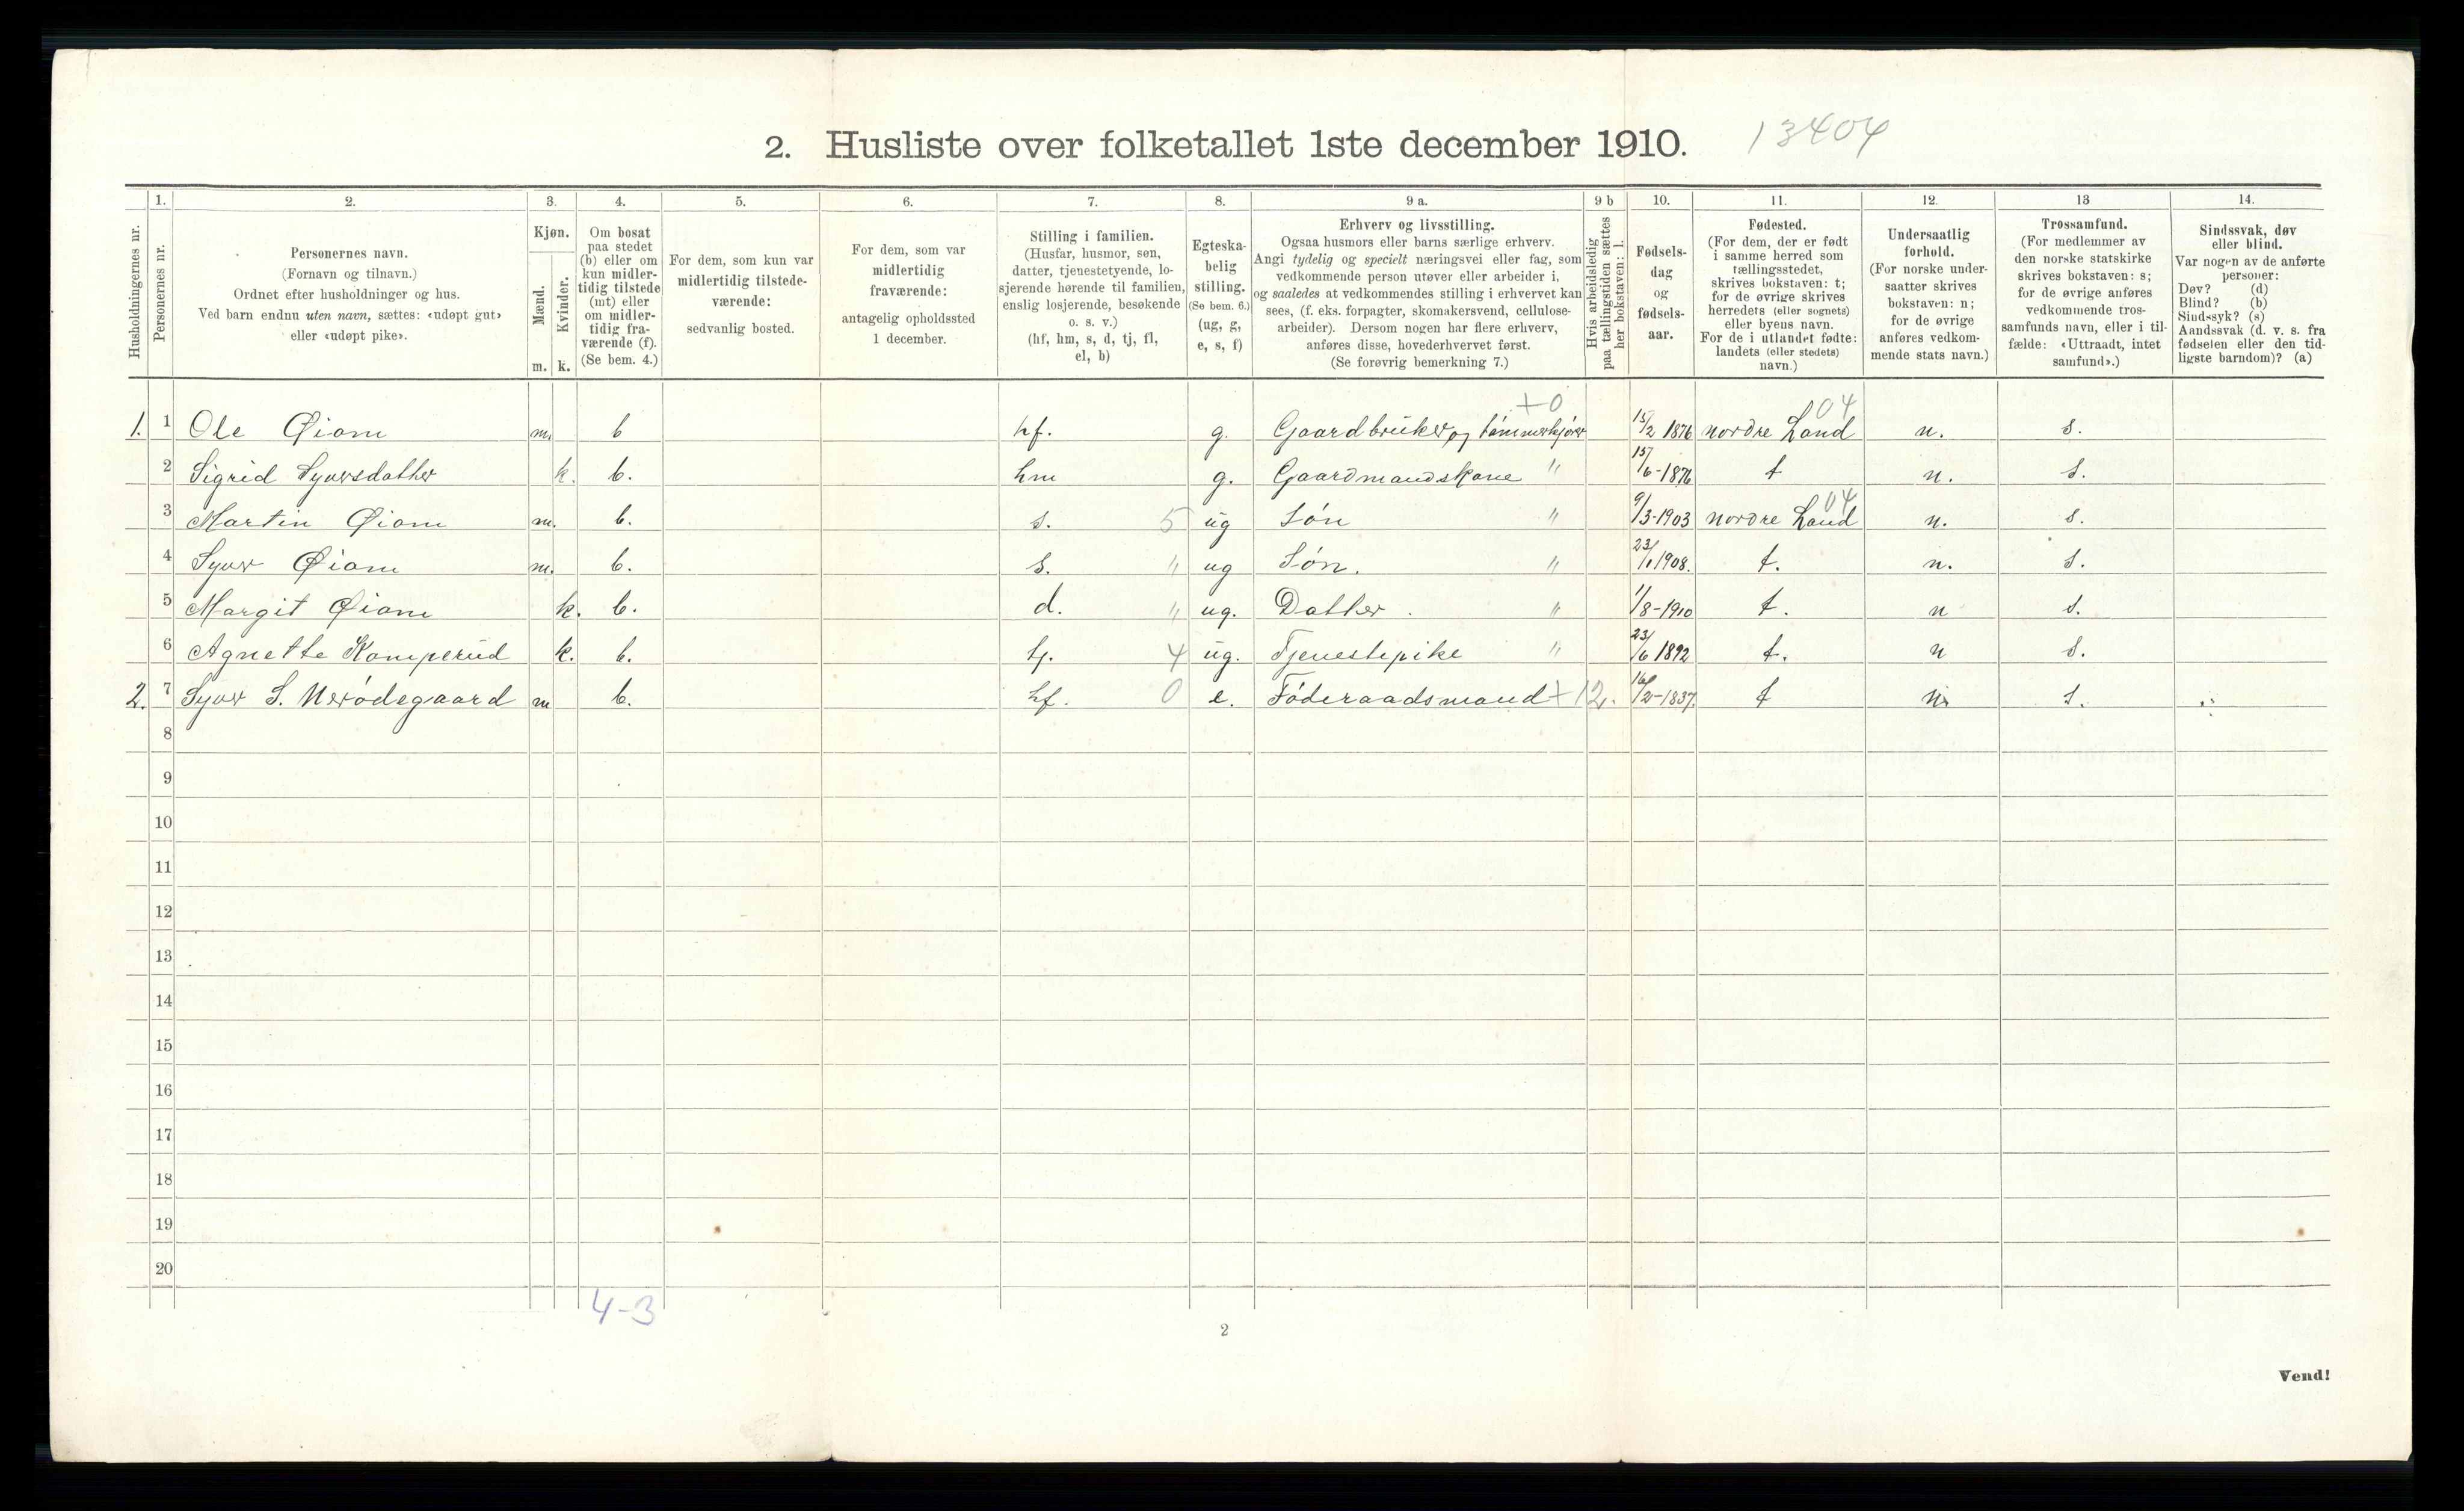 2. Husliste over folketallet 1ste december 1910. 13404
Husholdningernes nr.
1. 2. 3. 4. 5. 6. 7. 8. 9 a. 9 b 10. 11. 12. 13 14.
Personernes nr.
Personernes navn.
(Fornavn og tilnavn.)
Ordnet efter husholdninger og hus.
Ved barn endnu uten navn, sættes: «udøpt gut»
eller «udøpt pike».
Kjøn.
Mænd.
m.
Kvinder.
k.
Om bosat
paa stedet
(b) eller om
kun midler-
tidig tilstede
(mt) eller
om midler-
tidig fra-
værende (f).
(Se bem. 4.)
For dem, som kun var
midlertidig tilstede-
værende:
sedvanlig bosted.
For dem, som var
midlertidig
fraværende:
antagelig opholdssted
1 december.
Stilling i familien.
(Husfar, husmor, søn,
datter, tjenestetyende, lo-
sjerende hørende til familien,
enslig losjerende, besøkende
o. s. v.)
(hf, hm, s, d, tj, fl,
el, b)
Egteska-
belig
stilling.
(Se bem. 6.)
(ug, g,
e, s, f)
Erhverv og livsstilling.
Ogsaa husmors eller barns særlige erhverv.
Angi tydelig og specielt næringsvei eller fag, som
vedkommende person utøver eller arbeider i,
og saaledes at vedkommendes stilling i erhvervet kan
sees, (f. eks. forpagter, skomakersvend, cellulose-
arbeider). Dersom nogen har flere erhverv,
anføres disse, hovederhvervet først.
(Se forøvrig bemerkning 7.)
Hvis arbeidsledig
paa tællingstiden sættes
her bokstaven: l.
Fødsels-
dag
og
fødsels-
aar.
Fødested.
(For dem, der er født
i samme herred som
tællingsstedet,
skrives bokstaven: t;
for de øvrige skrives
herredets (eller sognets)
eller byens navn.
For de i utlandet fødte:
landets (eller stedets)
navn.)
Undersaatlig
forhold.
(For norske under-
saatter skrives
bokstaven: n;
for de øvrige
anføres vedkom-
mende stats navn.)
Trossamfund.
(For medlemmer av
den norske statskirke
skrives bokstaven: s;
for de øvrige anføres
vedkommende tros-
samfunds navn, eller i til-
fælde: «Uttraadt, intet
samfund».)
Sindssvak, døv
eller blind.
Var nogen av de anførte
personer:
Døv? (d)
Blind? (b)
Sindssyk? (s)
Aandssvak (d. v. s. fra
fødselen eller den tid-
ligste barndom)? (a)
+0 04
1. 1 Ole Øiom m. b hf. g. Gaardbruker og tømmerkjører 15/2 1876 nordre Land n. s.
2 Sigrid Syversdatter k. b. hm g. Gaardmandskone " 15/6-1876 t n. s.
04
3 Martin Øiom m. b. s. 5 ug Søn " 9/3-1903 nordre Land n. s.
4 Syver Øiom m. b. s. " ug Søn. " 23/1 1908. t. n. s.
5 Margit Øiom k. b. d. " ug. Datter. " 1/8-1910 t. n s.
6 Agnette Komperud k. b. tj. 4 ug. Tjenestepike " 23/6 1892 t. n s.
2. 7 Syver S. Nerødegaard m b. hf. 0 e. Føderaadsmand +12. 1837. t n s.
8
9
10
11
12
13
14
15
16
17
18
19
20
4-3
2
Vend!